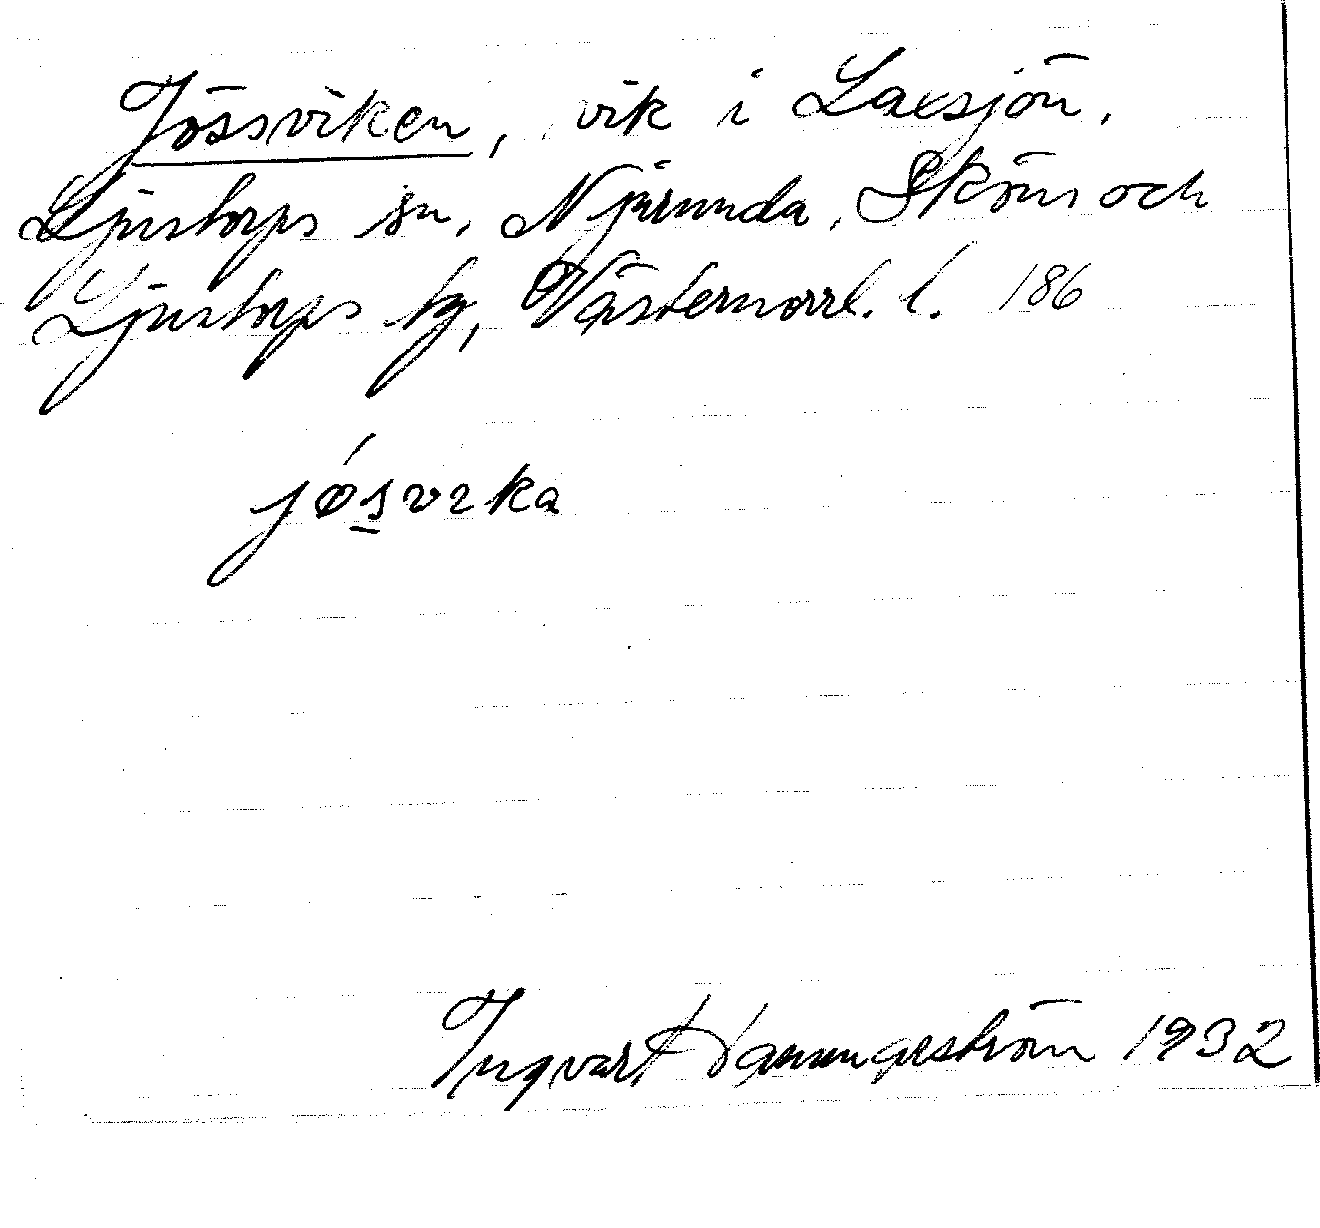 Jössviken, vik i Laxsjön,
Ljustorps sn, Njurunda, Sköns och
Ljustorps tg, Västernorrl. l. 186
jǿsvıka
Ingvart Hammarström 1932